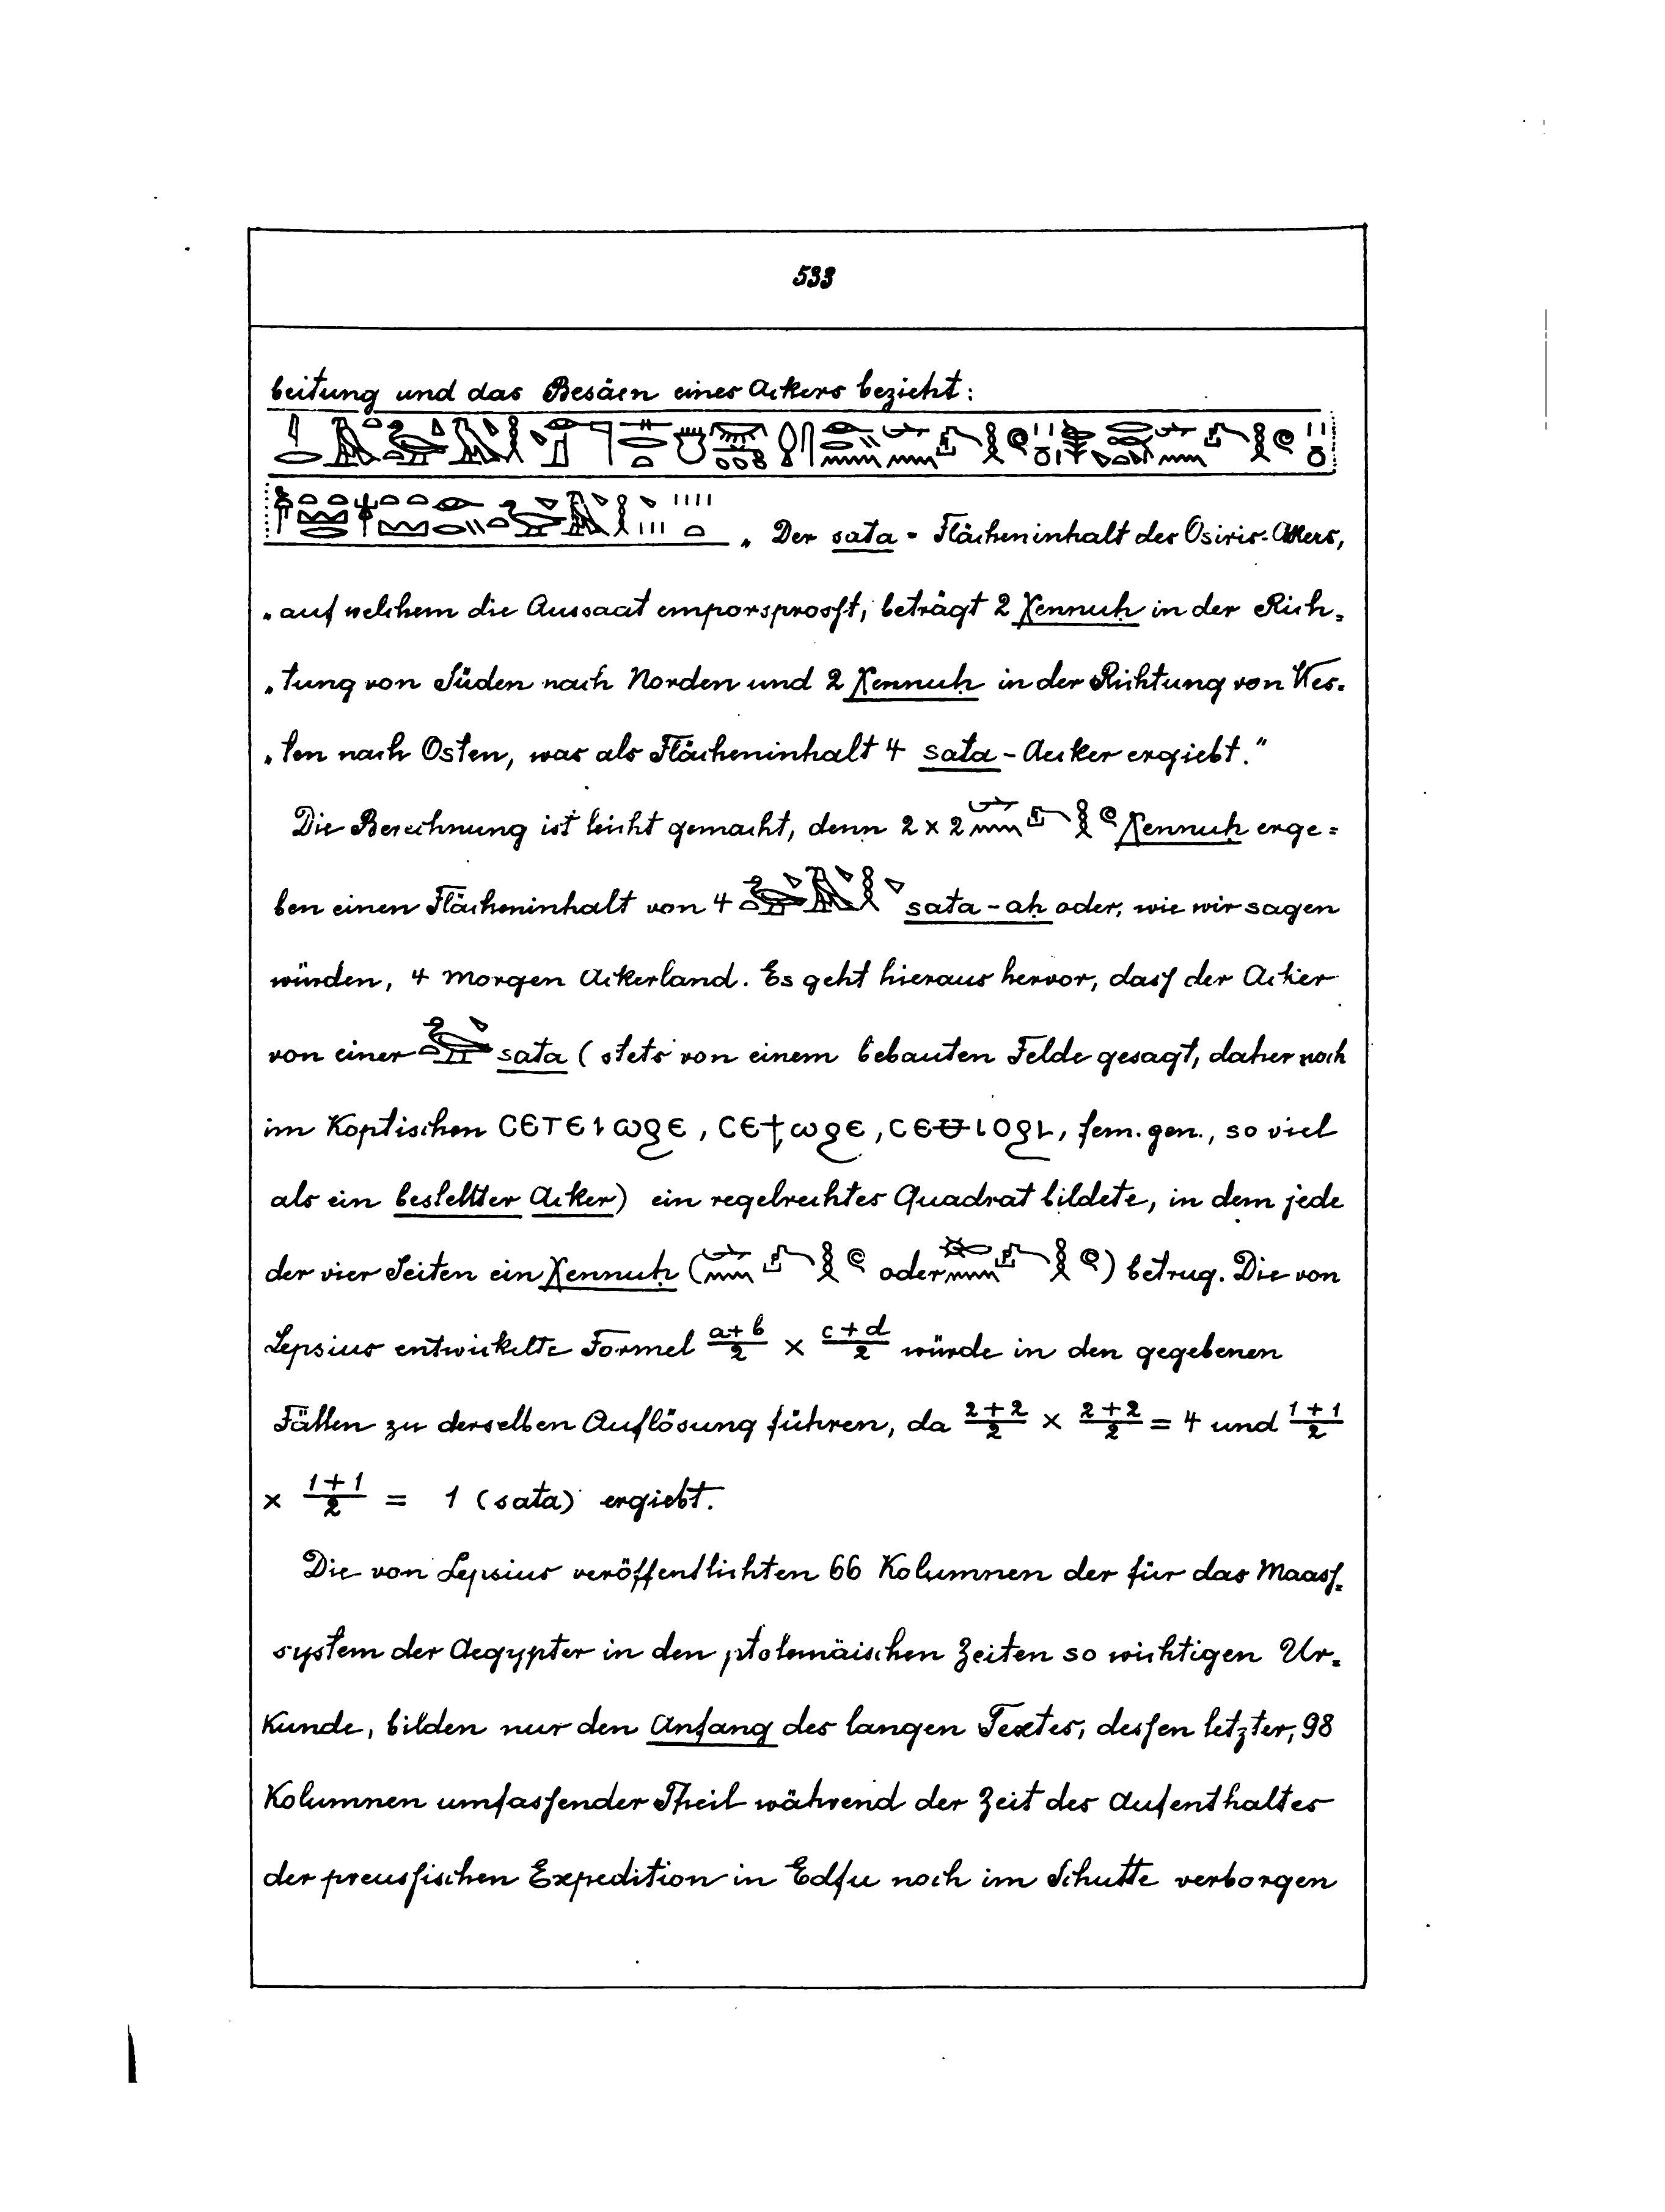 533
beitung und das Besäen eines Ackers bezieht:
„Der sata - Flächeninhalt des Osiris-Ackers,
„auf welchem die Aussaat emporsprosst, beträgt 2 Xennuḥ in der Rich-
„tung von Süden nach Norden und 2 Xennuḥ in der Richtung von Wes-
„ten nach Osten, was als Flächeninhalt 4 sata - Aecker ergiebt."
Die Berechnung ist leicht gemacht, denn 2 x 2 Xennuḥ erge-
ben einen Flächeninhalt von 4 sata - aḥ oder, wie wir sagen
würden, 4 Morgen Ackerland. Es geht hieraus hervor, dass der Acker
von einer sata (stets von einem bebauten Felde gesagt, daher noch
im Koptischen ⲤⲈⲦⲈⲓⲱϩⲈ, ⲤⲈϯⲱϩⲈ, , fem. gen., so viel
als ein bestellter Acker) ein regelrechtes Quadrat bildete, in dem jede
der vier Seiten ein Xennuḥ ( oder ) betrug. Die von
Lepsius entwickelte Formel a+b/2 × c+d/2 würde in den gegebenen
Fällen zu derselben Auflösung führen, da 2+2/2 × 2+2/2 = 4 und 1+1/2
× 1+1/2 = 1 (sata) ergiebt.
Die von Lepsius veröffentlichten 66 Kolumnen der für das Maass-
system der Aegypter in den ptolemäischen Zeiten so wichtigen Ur-
kunde, bilden nur den Anfang des langen Textes, dessen letzter, 98
Kolumnen umfassender Theil während der Zeit des Aufenthaltes
der preussischen Expedition in Edfu noch im Schutte verborgen